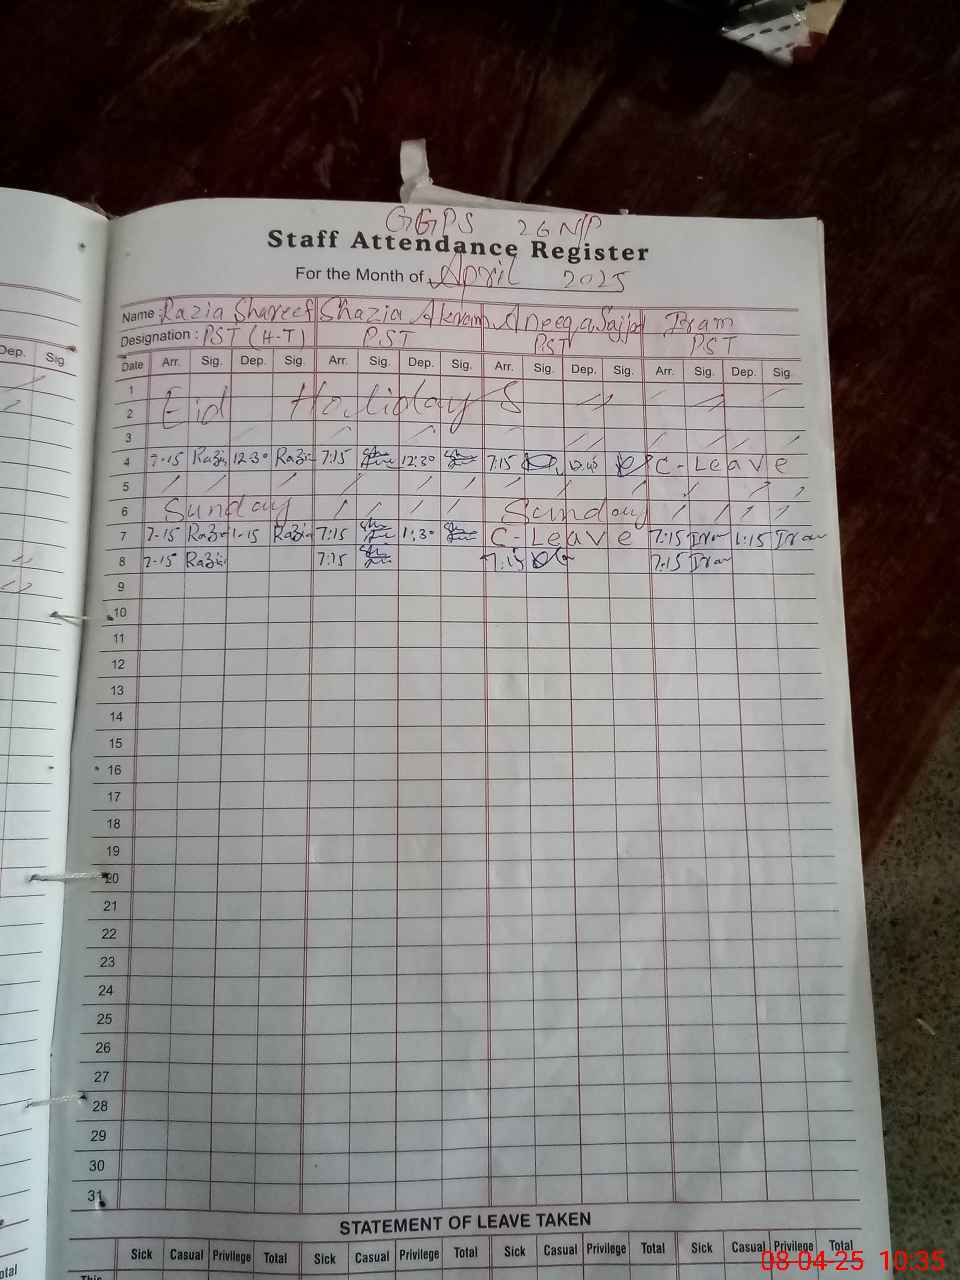 GGPS 26 N/P
Staff Attendance Register
For the Month of April 2025
Name : Razia Shareef Shazia Akram Aneeqa Sajjad Iram
Designation : PST (H-T) PST PST PST
Dep. Sig.
Date Arr. Sig. Dep. Sig. Arr. Sig. Dep. Sig. Arr. Sig. Dep. Sig. Arr. Sig. Dep. Sig.
1
2 Eid Holidays
3
4 7-15 Razia 12:30 Razia 7:15 12:30 7:15 C-Leave
5
6 Sunday Sunday
7 7-15 Razia 1-15 Razia 7:15 1:30 C-Leave 7:15 Iram 1:15 Iram
8 7-15 Razia 7:15 7:15 7:15 Iram
9
10
11
12
13
14
15
16
17
18
19
20
21
22
23
24
25
26
27
28
29
30
31
STATEMENT OF LEAVE TAKEN
Sick Casual Privilege Total Sick Casual Privilege Total Sick Casual Privilege Total Sick Casual Privilege Total
This
08-04-25 10:35